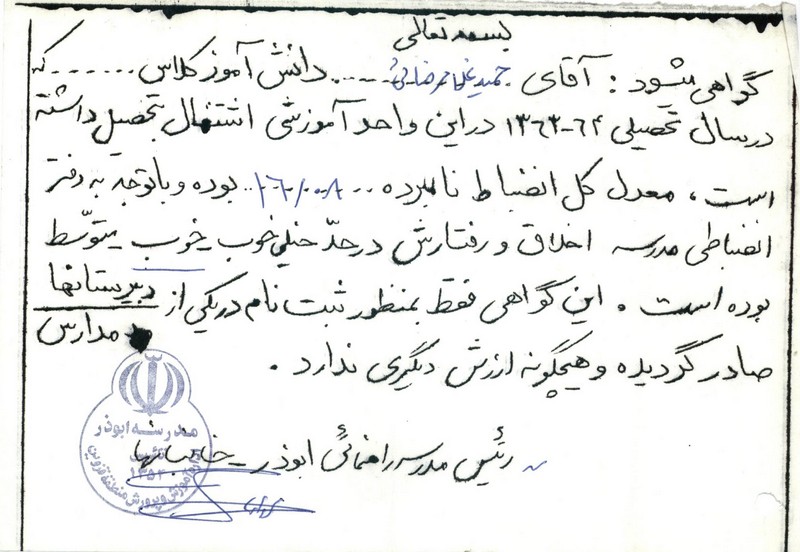 بسمه تعالی
گواهی میشود : آقای حمید غلامرضائی ..... دانش آموز کلاس ....... که
در سال تحصیلی ۶۴-۱۳۶۳ در این واحد آموزشی اشتغال بتحصیل داشته
است، معدل کل انضباط نامبرده ... ۱۶/۰۰۸ .. بوده و با توجه به دفتر
انضباطی مدرسه اخلاق و رفتارش در حدّ خیلی خوب - خوب - متوّسط
بوده است . این گواهی فقط بمنظور ثبت نام در یکی از دبیرستانها
مدارس
صادر گردیده و هیچگونه ارزش دیگری ندارد .
رئیس مدرسه راهنمائی ابوذر -
مدرسه ابوذر
۱۳۵۲
آموزش و پرورش منطقه قزوین